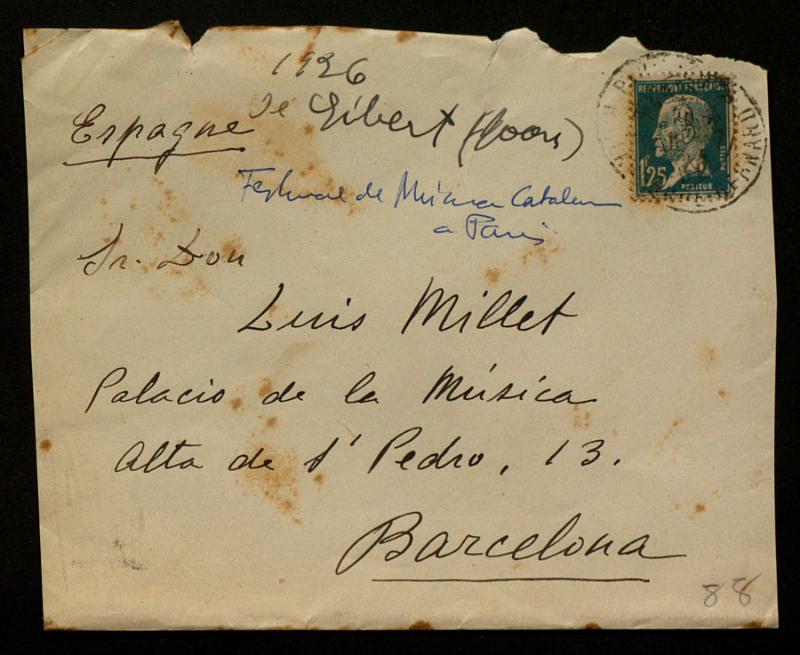 1926
de Gibert (Joan)
Espagne
Festival de Música Catalana
a Paris
Sr. Don
Luis Millet
Palacio de la Música
Alta de S' Pedro, 13.
Barcelona
88
REPUBLIQUE FRANÇAISE
POSTES
1F25
PASTEUR